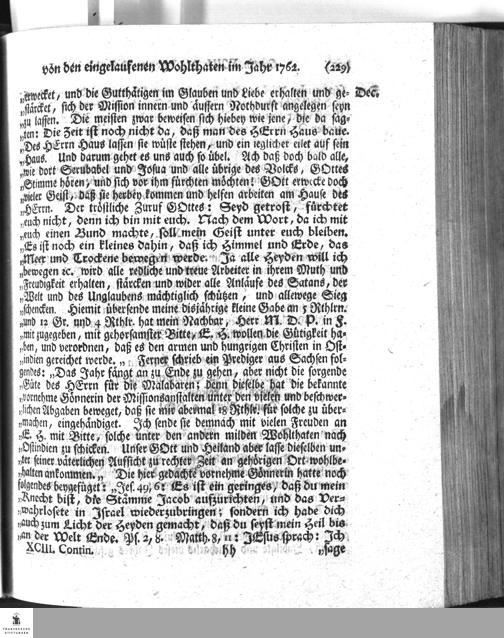 von den eingelaufenen Wohlthaten im Jahr 1762. (229)
„erwecket, und die Gutthätigen im Glauben und Liebe erhalten und ge- Dec.
„stärcket, sich der Mission innern und äussern Nothdurft angelegen seyn
„zu lassen. Die meisten zwar beweisen sich hiebey wie jene, die da sag-
„ten: Die Zeit ist noch nicht da, daß man des HErrn Haus baue.
„Des HErrn Haus lassen sie wüste stehen, und ein ieglicher eilet auf sein
„Haus. Und darum gehet es uns auch so übel. Ach daß doch bald alle,
„wie dort Serubabel und Josua und alle übrige des Volcks, GOttes
„Stimme hören, und sich vor ihm fürchten möchten! GOtt erwecke doch
„vieler Geist, daß sie herbey kommen und helfen arbeiten am Hause des
„HErrn. Der tröstliche Zuruf GOttes: Seyd getrost, fürchtet
„euch nicht, denn ich bin mit euch. Nach dem Wort, da ich mit
„euch einen Bund machte, soll mein Geist unter euch bleiben.
„Es ist noch ein kleines dahin, daß ich Himmel und Erde, das
„Meer und Trockene bewegen werde. Ja alle Heyden will ich
„bewegen ꝛc. wird alle redliche und treue Arbeiter in ihrem Muth und
„Freudigkeit erhalten, stärcken und wider alle Anläufe des Satans, der
„Welt und des Unglaubens mächtiglich schützen, und allewege Sieg
„schencken. Hiemit übersende meine disjährige kleine Gabe an 5 Rthlrn.
„und 12 Gr. und 4 Rthlr. hat mein Nachbar, Herr M. D. P. in F.
„mit zugegeben, mit gehorsamster Bitte, E. H. wollen die Gütigkeit ha-
„ben, und verordnen, daß es den armen und hungrigen Christen in Ost-
„indien gereichet werde.„ Ferner schrieb ein Prediger aus Sachsen fol-
gendes: „Das Jahr fängt an zu Ende zu gehen, aber nicht die sorgende
„Güte des HErrn für die Malabaren; denn dieselbe hat die bekannte
„vornehme Gönnerin der Missionsanstalten unter den vielen und beschwer-
„lichen Abgaben beweget, daß sie mir abermal 18 Rthlr. für solche zu über-
„machen, eingehändiget. Ich sende sie demnach mit vielen Freuden an
„E. H. mit Bitte, solche unter den andern milden Wohlthaten nach
„Ostindien zu schicken. Unser GOtt und Heiland aber lasse dieselben un-
„ter seiner väterlichen Aufsicht zu rechter Zeit an gehörigen Ort wohlbe-
„halten ankommen.„ Die hier gedachte vornehme Gönnerin hatte noch
folgendes beygefüget: „Jes. 49, 6: Es ist ein geringes, daß du mein
„Knecht bist, die Stämme Jacob aufzurichten, und das Ver-
„wahrlosete in Israel wiederzubringen; sondern ich habe dich
„auch zum Licht der Heyden gemacht, daß du seyst mein Heil bis
„an der Welt Ende. Ps. 2, 8. Matth. 8, 11: JEsus sprach: Ich
XCIII. Contin. hh „sage